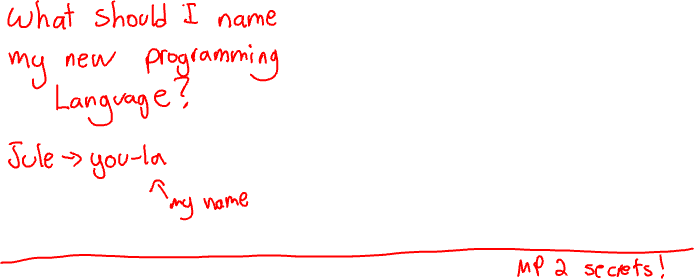 What should I name
my new programming
Language?
Jule → you-la
my name
MP 2 secrets!